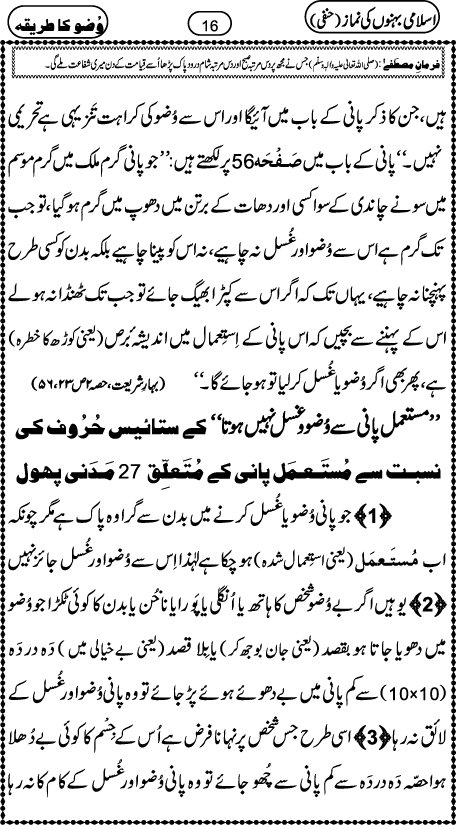 اسلامی بہنوں کی نماز (حنفی) 16 وُضو کا طریقہ
فرمانِ مصطفےٰ : (صلی اللہ تعالیٰ علیہ والہ وسلم) جس نے مجھ پر دس مرتبہ صبح اور دس مرتبہ شام درود پاک پڑھا اُسے قیامت کے دن میری شفاعت ملے گی۔
ہیں، جن کا ذکر پانی کے باب میں آئیگا اور اس سے وُضو کی کراہت تَنزیہی ہے تحریمی
نہیں۔‘‘ پانی کے باب میں صَفْحَہ 56 پر لکھتے ہیں: ’’جو پانی گرم ملک میں گرم موسم
میں سونے چاندی کے سوا کسی اور دھات کے برتن میں دھوپ میں گرم ہو گیا، تو جب
تک گرم ہے اس سے وُضو اور غسل نہ چاہیے، نہ اس کو پینا چاہیے بلکہ بدن کو کسی طرح
پہنچنا نہ چاہیے، یہاں تک کہ اگر اس سے کپڑا بھیگ جائے تو جب تک ٹھنڈا نہ ہولے
اس کے پہننے سے بچیں کہ اس پانی کے اِستِعمال میں اندیشۂ بَرَص (یعنی کوڑھ کا خطرہ)
ہے، پھر بھی اگر وُضو یا غُسل کر لیا تو ہو جائے گا۔‘‘ (بہارِ شریعت، حصہ ۲ ص ۲۳، ۵۶)
’’مستعمل پانی سے وُضو و غسل نہیں ہوتا‘‘ کے ستائیس حُرُوف کی
نسبت سے مُستَعمَل پانی کے مُتَعلِّق 27 مَدَنی پھول
﴿1﴾ جو پانی وُضو یا غُسل کرنے میں بدن سے گرا وہ پاک ہے مگر چونکہ
اب مُستَعمَل (یعنی استعمال شدہ) ہو چکا ہے لہٰذا اِس سے وُضو اور غُسل جائز نہیں
﴿2﴾ یوہیں اگر بے وُضو شخص کا ہاتھ یا اُنگلی یا پَورا یا ناخُن یا بدن کا کوئی ٹکڑا جو وُضو
میں دھویا جاتا ہو بقصد (یعنی جان بوجھ کر) یا بِلا قصد (یعنی بے خیالی میں) دَہ در دَہ
(10×10) سے کم پانی میں بے دھوئے ہوئے پڑ جائے تو وہ پانی وُضو اور غُسل کے
لائق نہ رہا ﴿3﴾ اسی طرح جس شخص پر نہانا فرض ہے اُس کے جِسْم کا کوئی بے دُھلا
ہوا حصّہ دَہ در دَہ سے کم پانی سے چُھو جائے تو وہ پانی وُضو اور غُسل کے کام کا نہ رہا